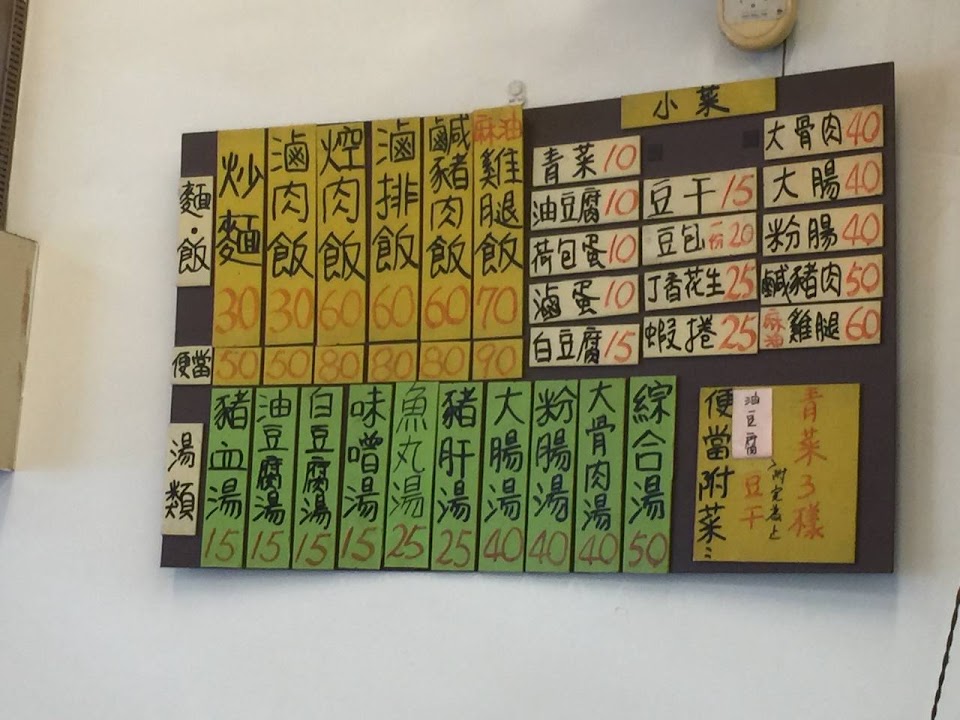 麵·飯
炒麵 30
滷肉飯 30
焢肉飯 60
滷排飯 60
鹹豬肉飯 60
麻油雞腿飯 70
便當
50
50
80
80
80
90
湯類
豬血湯 15
油豆腐湯 15
白豆腐湯 15
味噌湯 15
魚丸湯 25
豬肝湯 25
大腸湯 40
粉腸湯 40
大骨肉湯 40
綜合湯 50
小菜
青菜 10
油豆腐 10
荷包蛋 10
滷蛋 10
白豆腐 15
豆干 15
豆包 20
丁香花生 25
蝦捲 25
大骨肉 40
大腸 40
粉腸 40
鹹豬肉 50
麻油雞腿 60
便當附菜:
青菜3樣
油豆腐
豆干